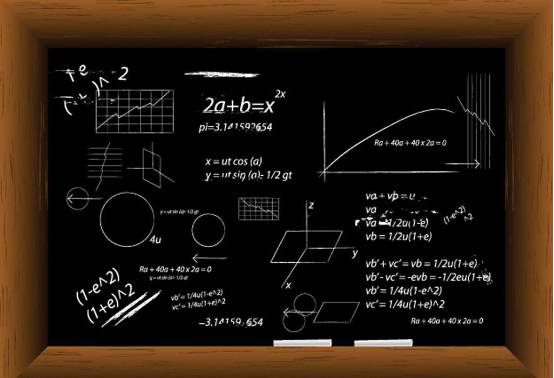 2a+b=x^2x
pi=3.14159?654
x = ut cos (a)
y = ut sin (a)- 1/2 gt
Ra + 40a + 40 x 2a = 0
4u
y = ut sin (a)- 1/2 gt
z
y
x
va + vb = u
va
va = 1/2u(1-e)
vb = 1/2u(1+e)
(1-e^2)
Ra + 40a + 40 x 2a = 0
y = ut sin (a)- 1/2 gt
(1-e^2)
(1+e)^2
vb' = 1/4u(1-e^2)
vc' = 1/4u(1+e)^2
vb' + vc' = vb = 1/2u(1+e)
vb'- vc' = -evb = -1/2eu(1+e)
vb' = 1/4u(1-e^2)
vc' = 1/4u(1+e)^2
Ra + 40a + 40 x 2a = 0